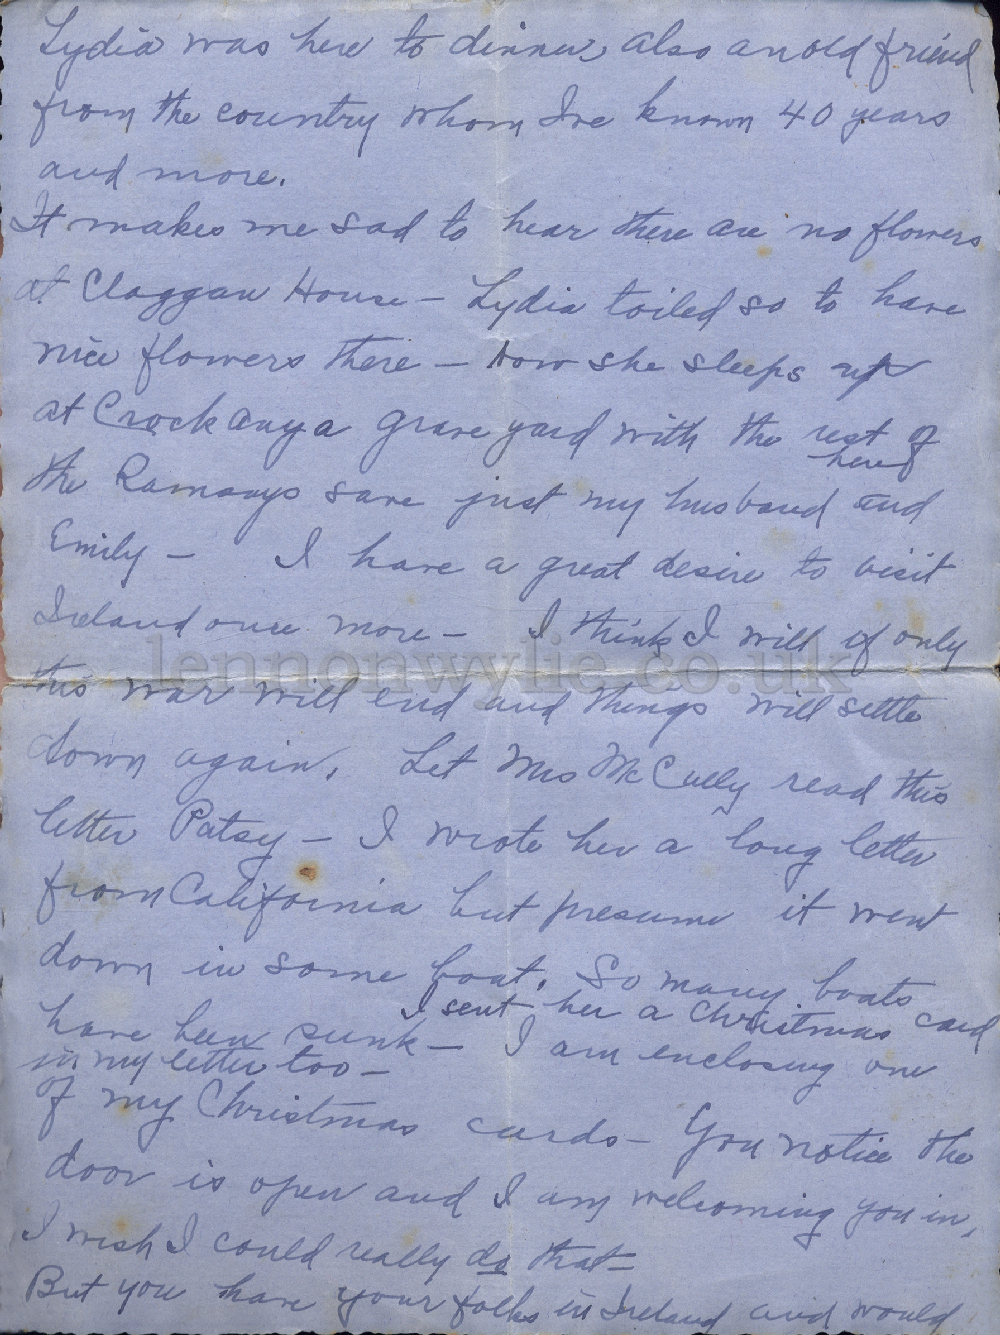 Lydia was here to dinner, also an old friend
from the country whom I've known 40 years
and more.
It makes me sad to hear there are no flowers
at Claggan House – Lydia toiled so to have
nice flowers there – now she sleeps up
at Crockanya grave yard with the rest of
the Ramseys save just my husband here and
Emily – I have a great desire to visit
Ireland once more – I think I will if only
lennonwylie.co.uk
this war will end and things will settle
down again. Let Mrs McCully read this
letter Patsy – I wrote her a long letter
from California but presume it went
down in some boat. So many boats
have been sunk – I sent her a Christmas card
in my letter too – I am enclosing one
of my Christmas cards – You notice the
door is open and I am welcoming you in,
I wish I could really do that –
But you have your folks in Ireland and would